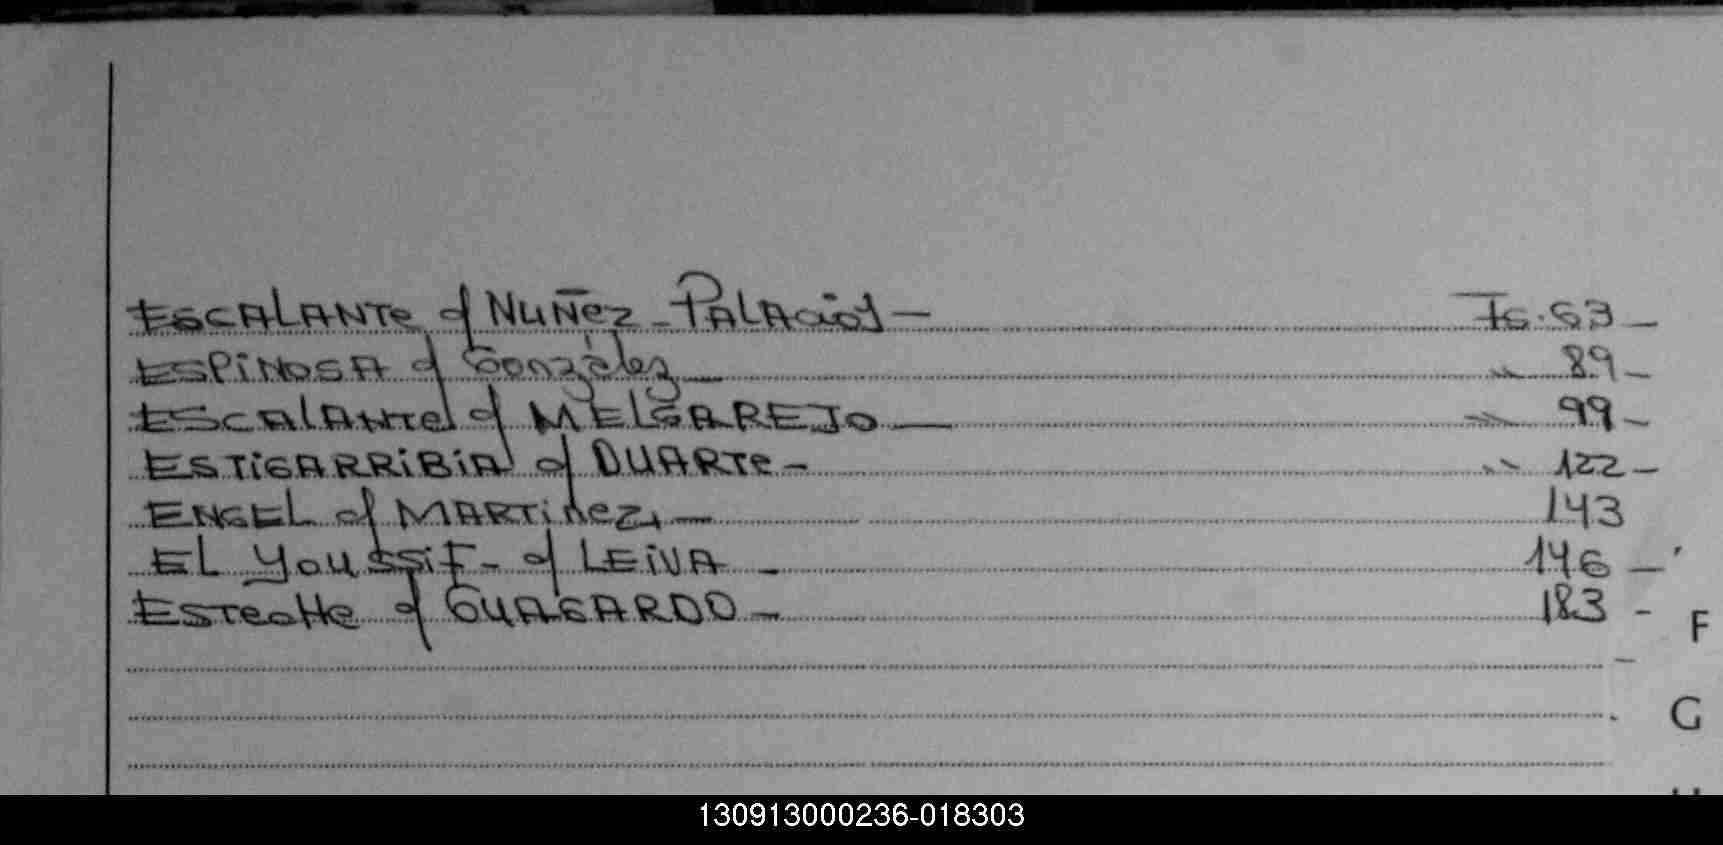 ESCALANTE of NUÑEZ - PALACIOS — Fs. 63 —
ESPINOSA of González — " 89 —
ESCALANTE of MELGAREJO — " 99 —
ESTIGARRIBIA of DUARTE - " 122 —
ENGEL of MARTINEZ. — 143
EL YOUSSIF - of LEIVA - 146 —
ESTECHE of GUAGARDO - 183 -
F
G
130913000236-018303